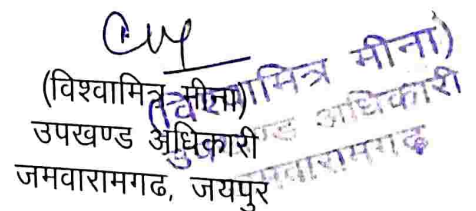 (विश्वामित्र मीना)
उपखण्ड अधिकारी
जमवारामगढ, जयपुर
(विश्वामित्र मीना)
उपखण्ड अधिकारी
जमवारामगढ